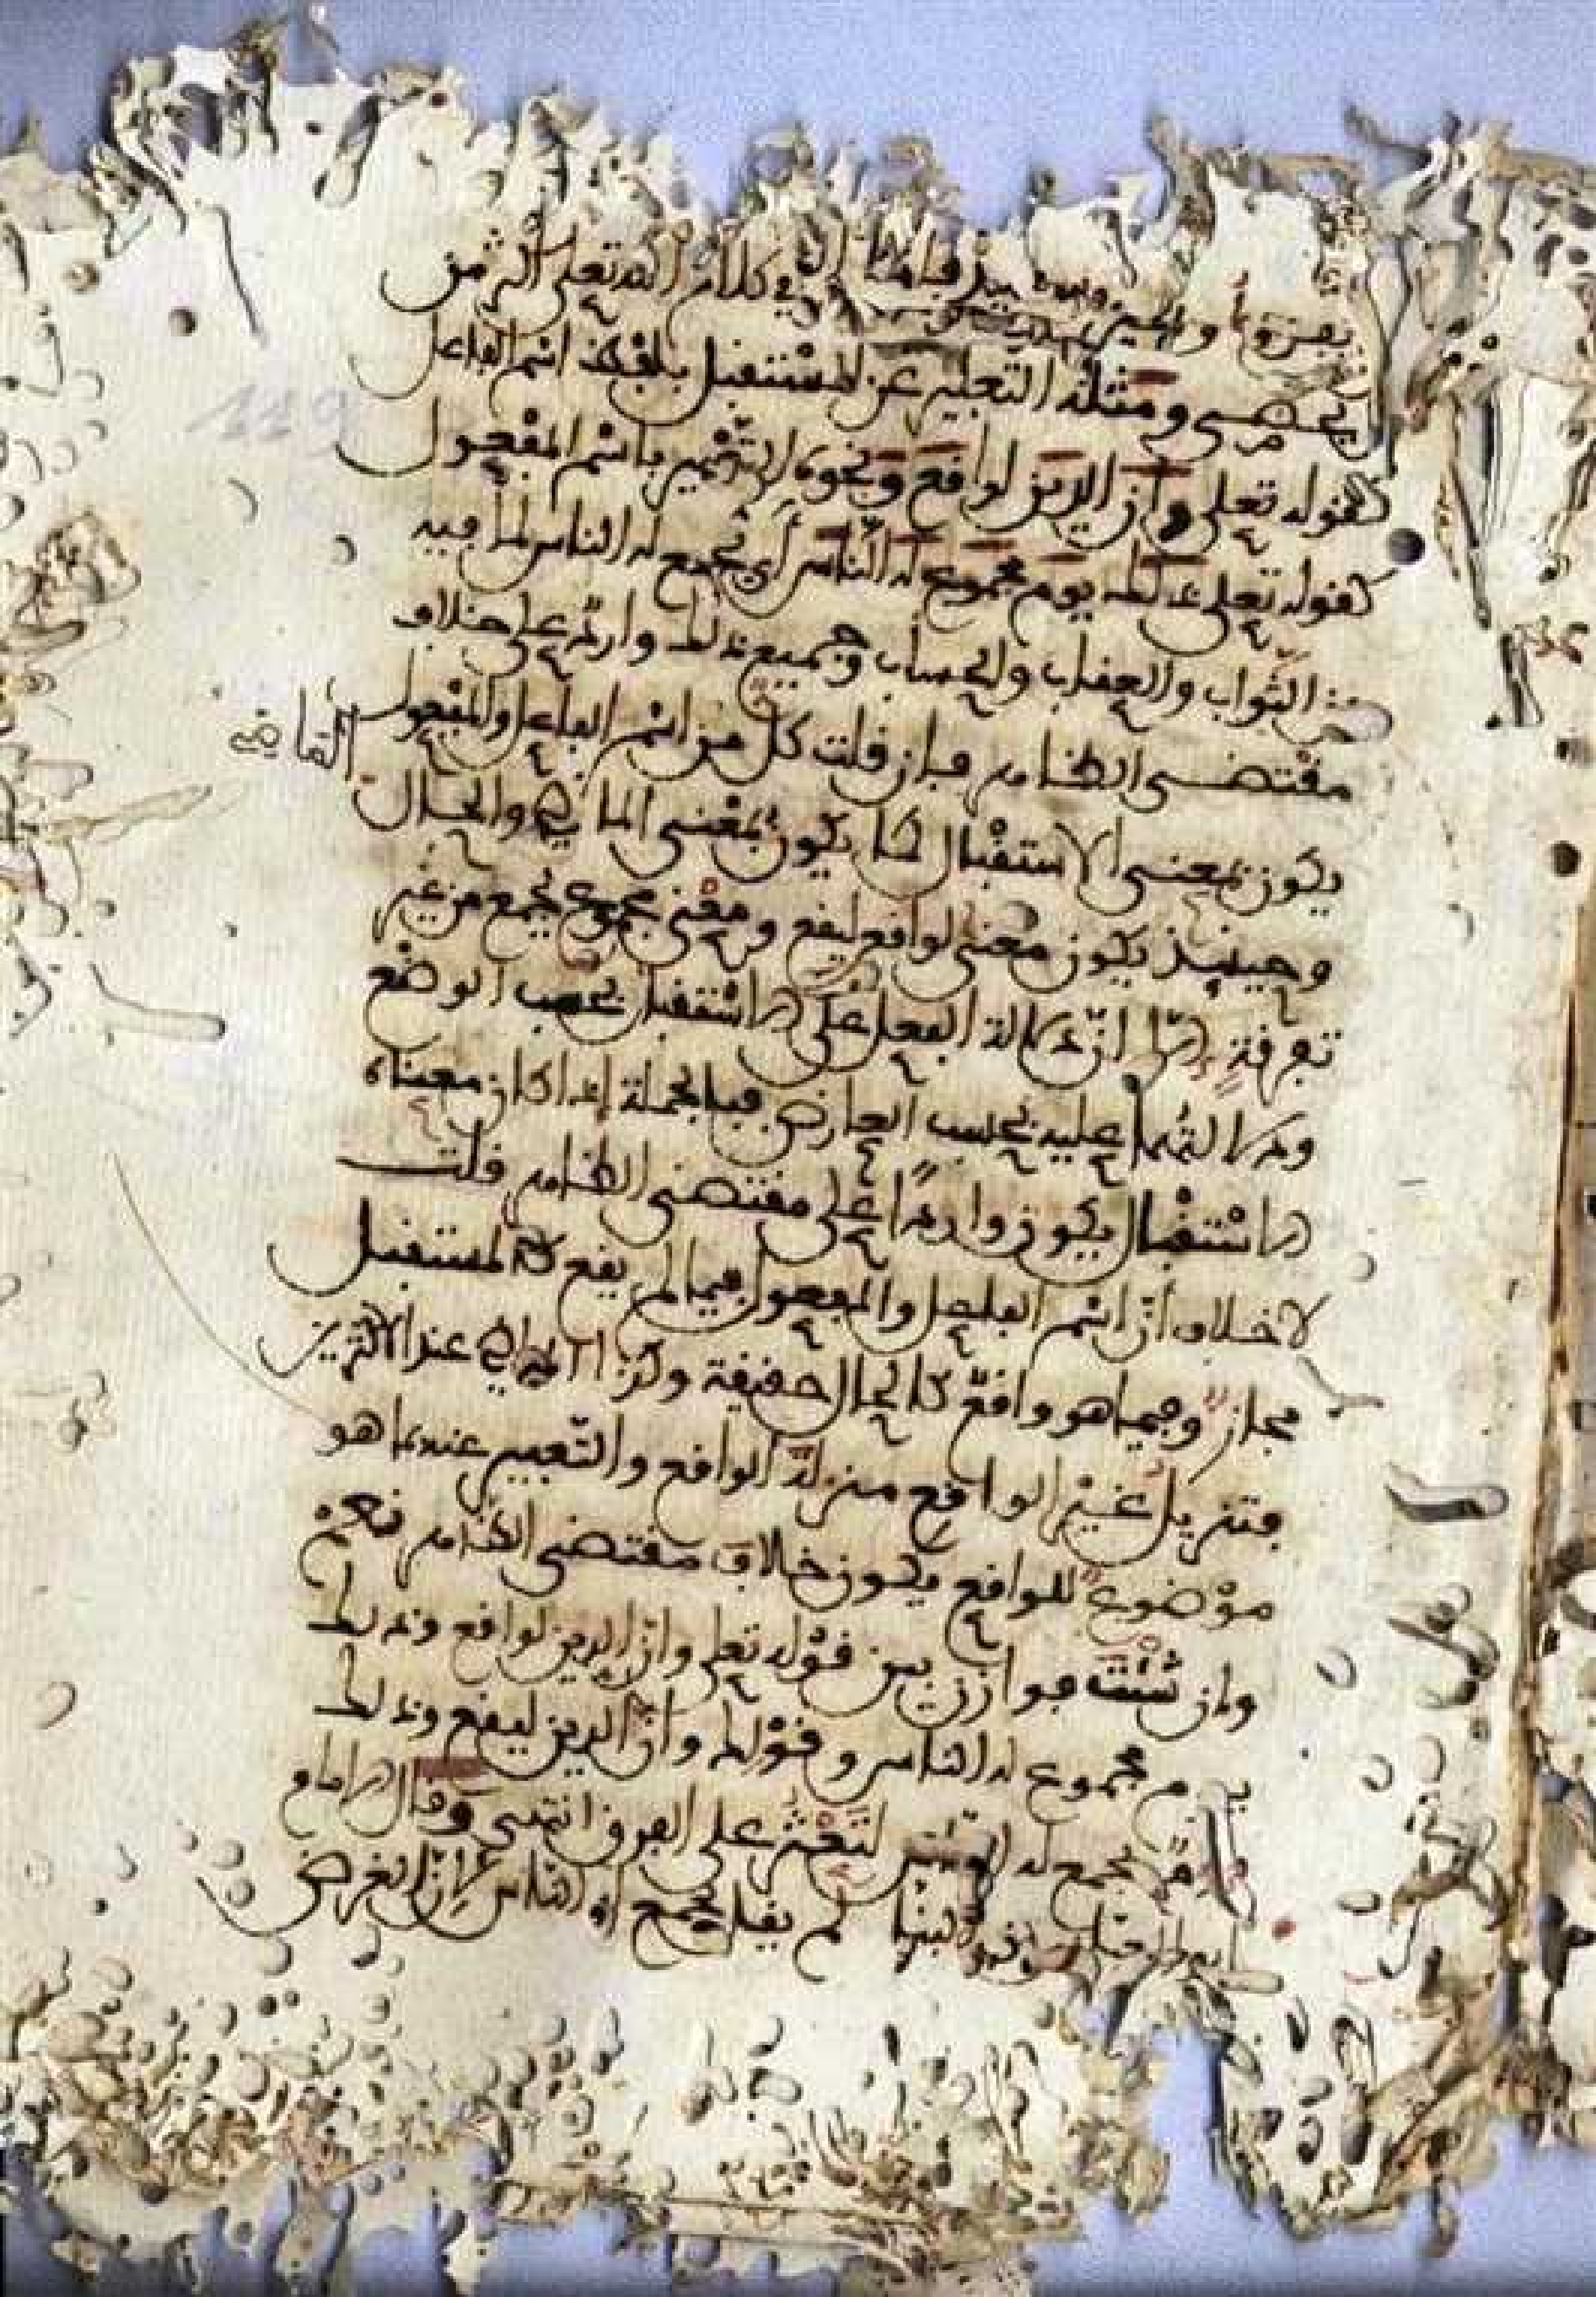 في كلام الله تعلى أكثر من
ان يحصى ومثله التعبير عن المستقبل بلفظ اسم الفاعل
كقوله تعلى وان الدين لواقع ونحوه التعبير باسم المفعول
كقوله تعلى ذلك يوم مجموع له الناس أي يجمع له الناس لما فيه
من الثواب والعقاب والحساب وجميع ذلك وارد على خلاف
مقتضى الظاهر فإن قلت كل من اسم الفاعل والمفعول
يكون بمعنى الاستقبال كما يكون بمعنى الماضي والحال
الماضي
وحينئذ يكون معنى لواقع ليقع ومعنى مجموع يجمع من غير
تفرقة إلا أن دلالة الفعل على الاستقبال بحسب الوضع
ودلالتهما عليه بحسب العارض فبالجملة إذا كان معناه
الاستقبال يكون واردا على مقتضى الظاهر قلت
لا خلاف أن اسم الفاعل والمفعول فيما لم يقع كالمستقبل
مجاز وفيما هو واقع كالحال حقيقة وكذا الماضي عند الاكثرين
فتنزيل غير الواقع منزلة الواقع والتعبير عنه بما هو
موضوع للواقع يكون خلاف مقتضى الظاهر نعم
وان شئت فوازن بين قوله تعلى وان الدين لواقع وذلك
يوم مجموع له الناس وقولك وان الدين ليقع وذلك
يوم يجمع له الناس لتعثر على الفرق انتهى وقال الامام
لم يقل يجمع له الناس لان الغرض